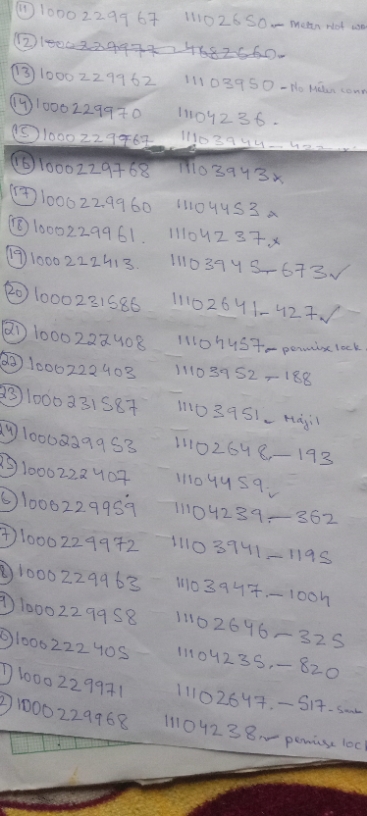 (11) 1000229967 11102650 - Meter Not
(12) 1000229977 - 4682660
(13) 1000229962 11103950 - No Meter conn
(14) 1000229970 11104236 -
(15) 1000229767 11103944 -
(16) 1000229768 11103943 x
(17) 1000229960 11104453 x
(18) 1000229961. 11104237. x
(19) 1000222413 11103945 - 673 ✓
(20) 1000231586 11102641 - 427 ✓
(21) 1000222408 11104457 - permise lock
(22) 1000222403 11103952 - 188
(23) 1000231587 11103951 -
(24) 1000229953 11102648 - 193
(25) 1000222407 11104459.
(6) 1000229959 11104239. - 362
(7) 1000229972 11103941 - 1195
(8) 1000229963 11103947. - 1004
(9) 1000229958 11102646 - 325
1000222405 11104235. - 820
(1) 1000229971 11102647. - 517 -
(2) 1000229968 11104238 - permise lock